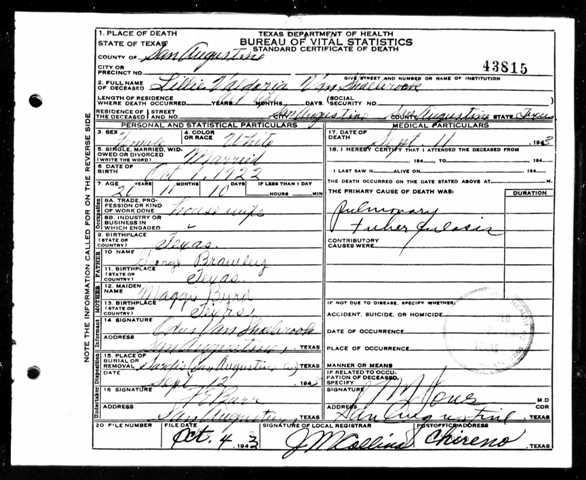 NOTE THE INFORMATION CALLED FOR ON THE REVERSE SIDE
1. PLACE OF DEATH
STATE OF TEXAS
COUNTY OF San Augustine
CITY OR PRECINCT NO.
TEXAS DEPARTMENT OF HEALTH
BUREAU OF VITAL STATISTICS
STANDARD CERTIFICATE OF DEATH
43815
GIVE STREET AND NUMBER OR NAME OF INSTITUTION
2. FULL NAME OF DECEASED Lillie Van
LENGTH OF RESIDENCE WHERE DEATH OCCURRED YEARS MONTHS DAYS
SOCIAL SECURITY NO.
RESIDENCE OF THE DECEASED STREET AND NO. San Augustine COUNTY San Augustine STATE Texas
PERSONAL AND STATISTICAL PARTICULARS
3. SEX
4. COLOR OR RACE White
5. SINGLE, MARRIED, WIDOWED OR DIVORCED (WRITE THE WORD) Married
6. DATE OF BIRTH Oct 1, 1922
7. AGE 20 YEARS 11 MONTHS 10 DAYS IF LESS THAN 1 DAY HOURS MIN
8A. TRADE, PROFESSION OR KIND OF WORK DONE house wife
8B. INDUSTRY OR BUSINESS IN WHICH ENGAGED
9. BIRTHPLACE (STATE OR COUNTRY) Texas
FATHER
10 NAME Brawley
11. BIRTHPLACE (STATE OR COUNTRY) Texas
MOTHER
12. MAIDEN NAME Byrd
13. BIRTHPLACE (STATE OR COUNTRY)
Informant
14 SIGNATURE Van
ADDRESS San Augustine, TEXAS
15. PLACE OF BURIAL OR REMOVAL
Sept 12 194
16 SIGNATURE
ADDRESS San Augustine, TEXAS
MEDICAL PARTICULARS
17. DATE OF DEATH Sept 1943
18. I HEREBY CERTIFY THAT I ATTENDED THE DECEASED FROM
194 TO 194
I LAST SAW H ALIVE ON 194
THE DEATH OCCURRED ON THE DATE STATED ABOVE AT M.
THE PRIMARY CAUSE OF DEATH WAS: DURATION
Pulmonary
Tuberculosis
CONTRIBUTORY CAUSES WERE:
IF NOT DUE TO DISEASE, SPECIFY WHETHER:
ACCIDENT, SUICIDE, OR HOMICIDE
DATE OF OCCURRENCE
PLACE OF OCCURRENCE
MANNER OR MEANS
IF RELATED TO OCCUPATION OF DECEASED, SPECIFY
SIGNATURE M.D.
ADDRESS San Augustine COR TEXAS
20 FILE NUMBER
FILE DATE Oct. 4 1943
SIGNATURE OF LOCAL REGISTRAR J M Collins
POSTOFFICE ADDRESS Chireno, TEXAS